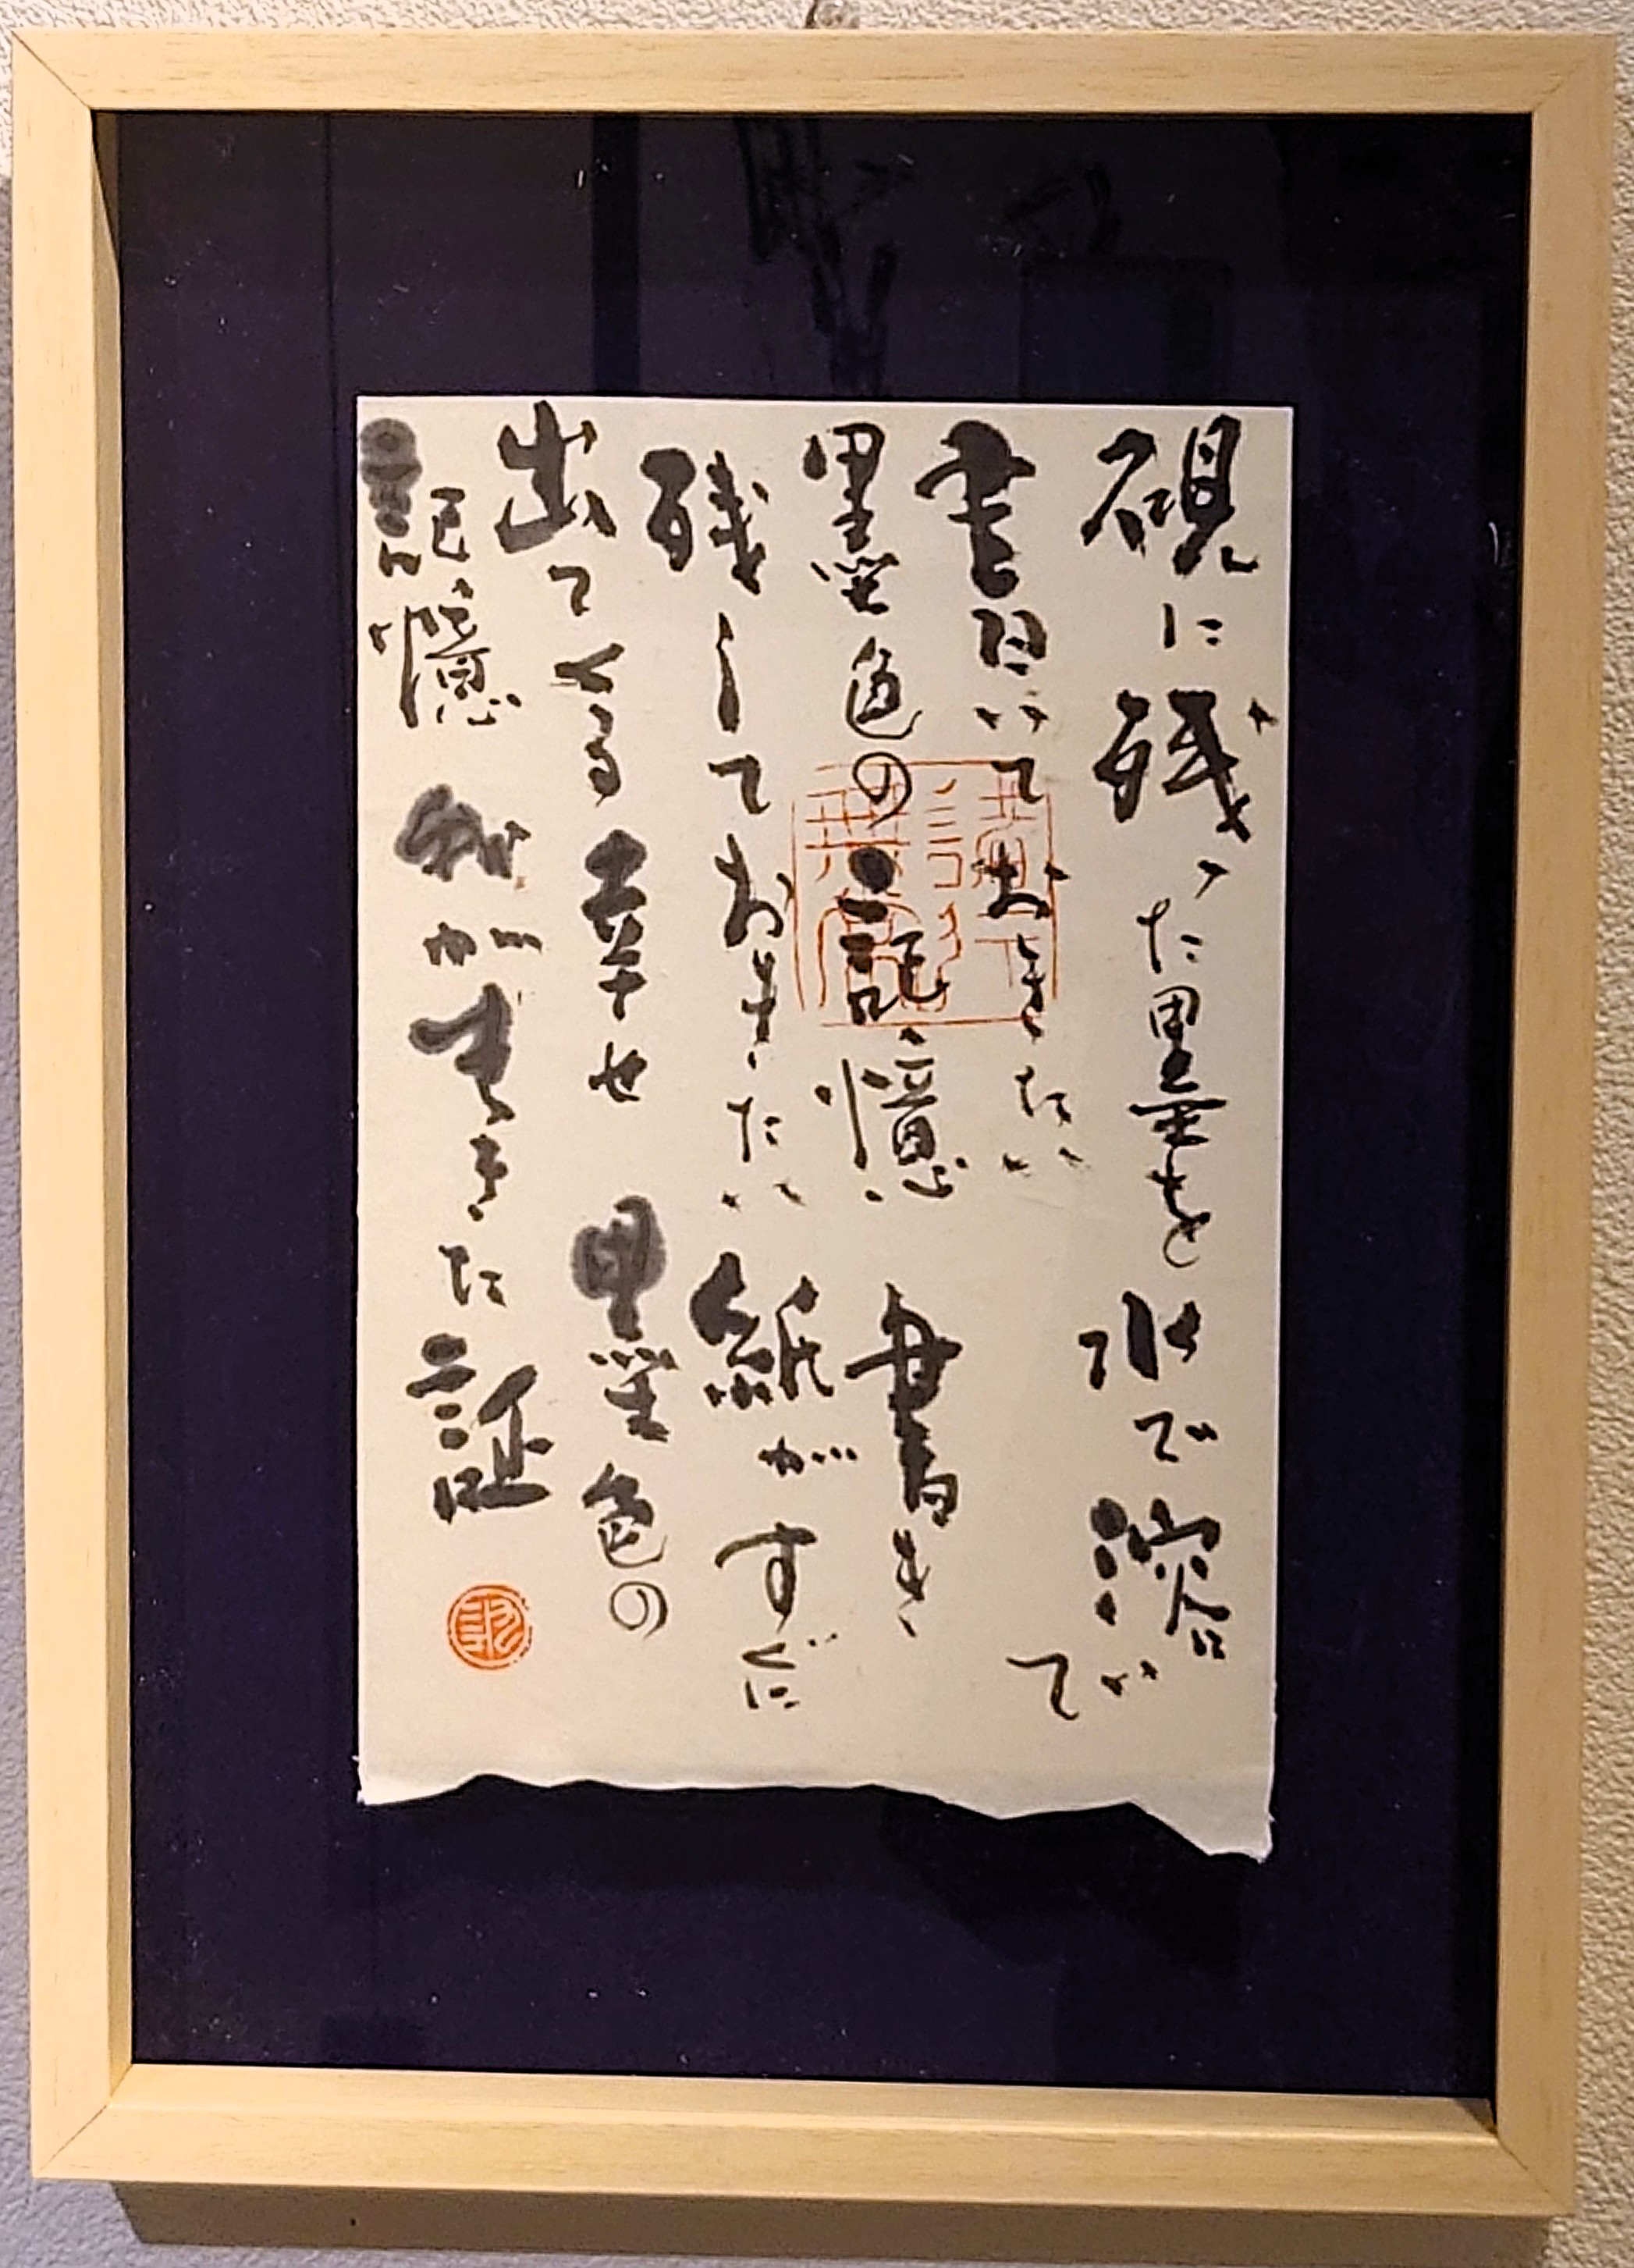 硯に残った墨を水で溶いで
書いておきたい
墨色の記憶 書き
残しておきたい紙がすぐに
出てくる幸せ 墨色の
記憶 我が生きた証